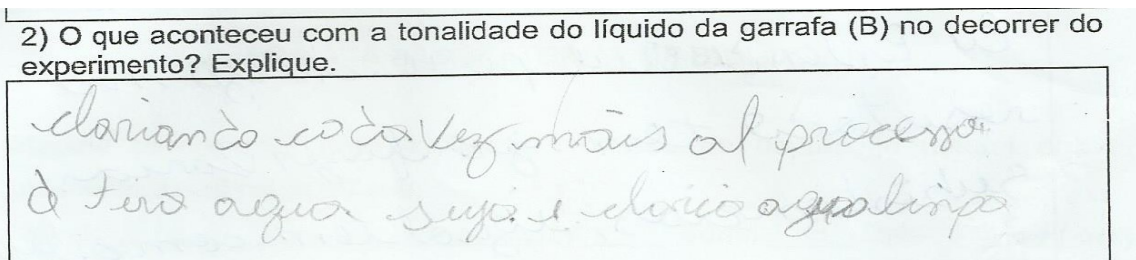 2) O que aconteceu com a tonalidade do líquido da garrafa (B) no decorrer do
experimento? Explique.
clariando cada vez mais al processo
d tira agua suja e claria agua limpa